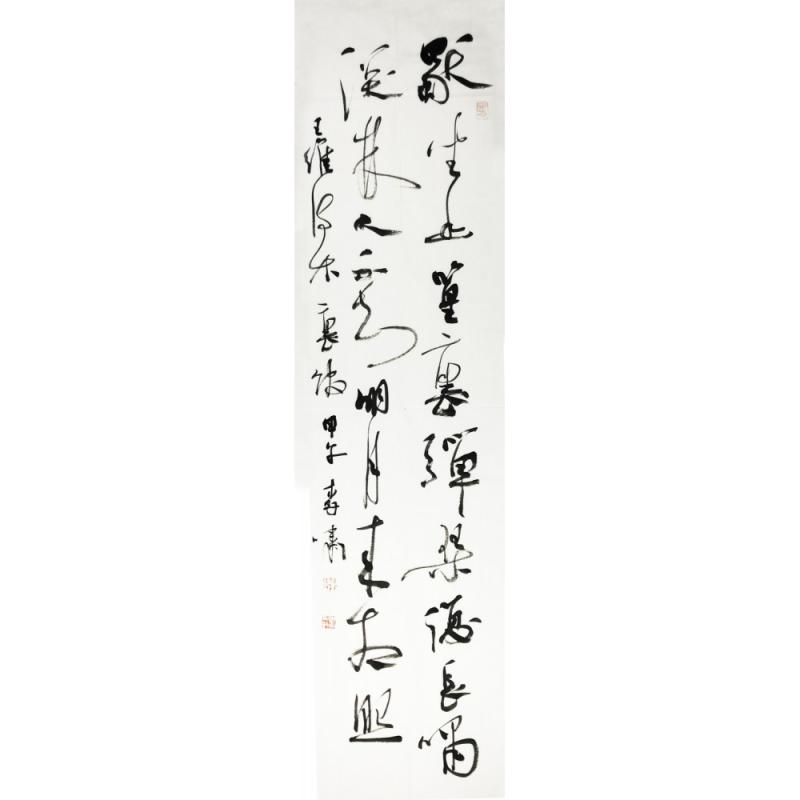 獨坐幽篁裏彈琴復長嘯
深林人不知明月來相照
王維詩竹裏館甲午